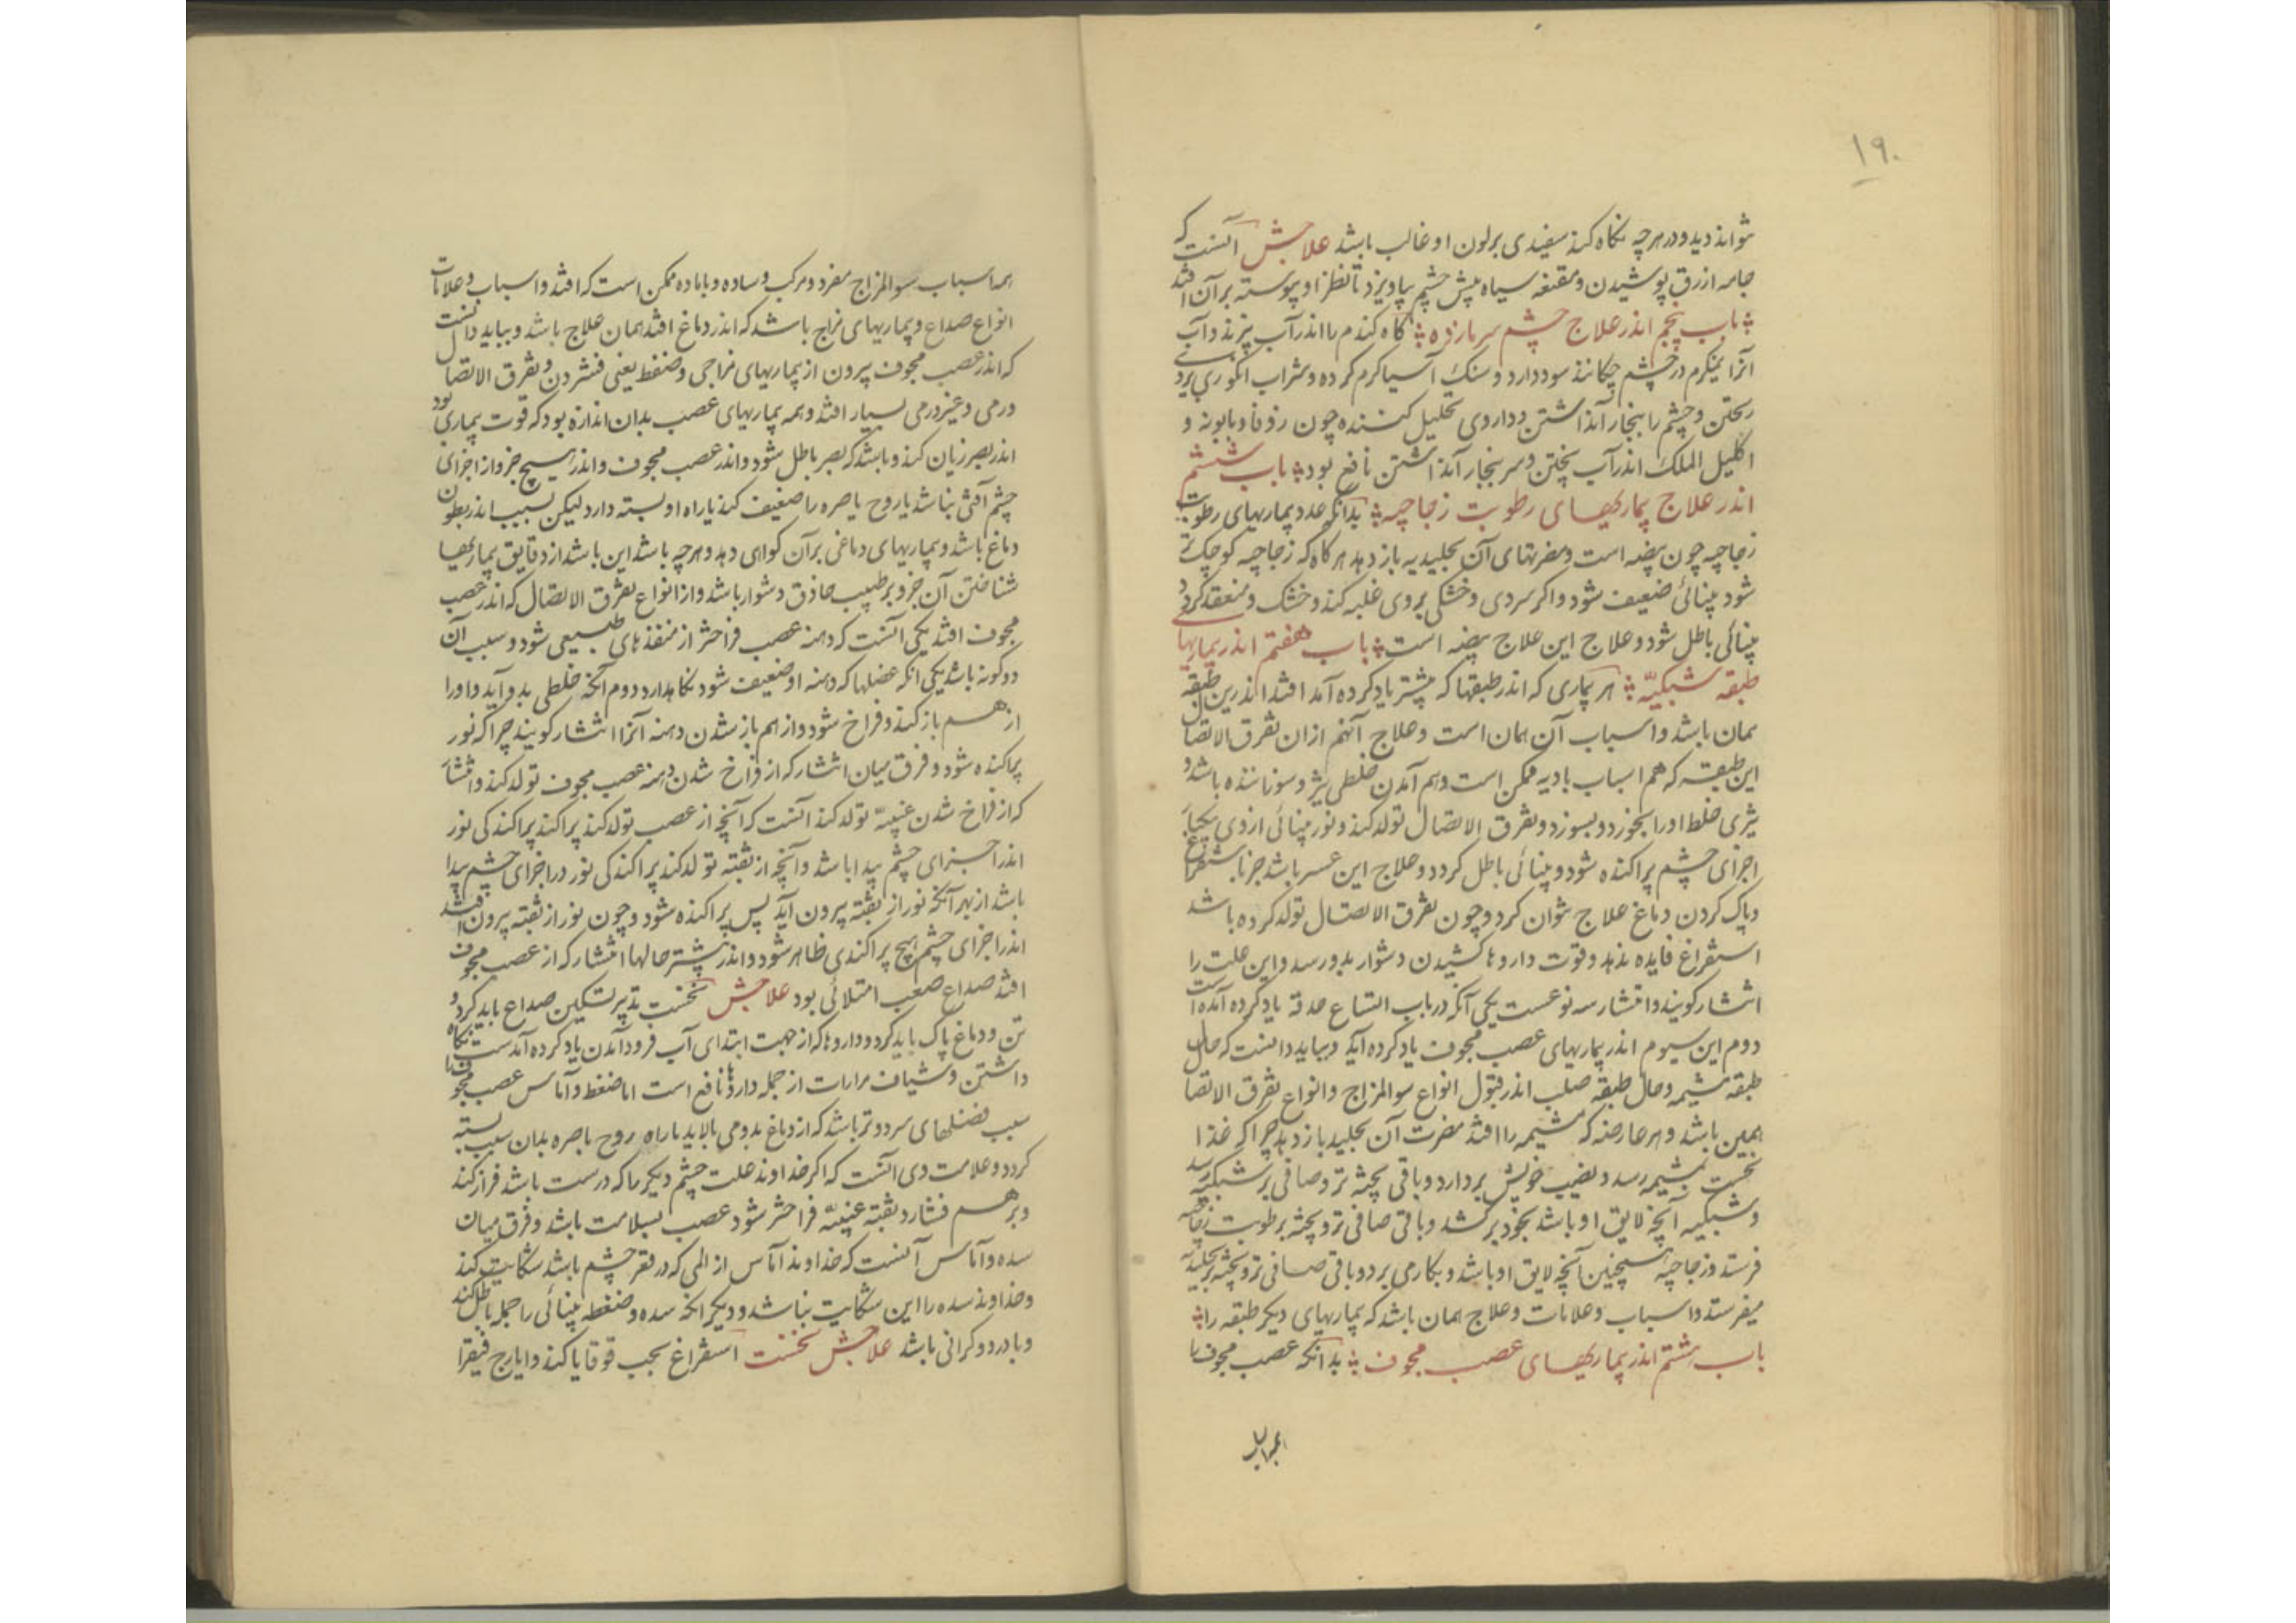 ۱۹۰
نتواند دید و در هر چه نگاه کند سفیدی بر لون او غالب باشد علاجش آنست که
جامه ازرق پوشیدن و مقنعه سیاه پیش چشم بیاویزد تا نظر او پیوسته بر آن افتد
باب پنجم اندر علاج چشم سرمازده کاه کندم را اندر آب پزند و آب
آنرا نیمکرم در چشم چکانند سود دارد و سنک آسیا کرم کرده و شراب انکوری بر وی
ریختن و چشم را ببخار آن داشتن و داروی تحلیل کننده چون زوفا و بابونه و
اکلیل الملک اندر آب پختن و سر ببخار آن داشتن نافع بود باب ششم
اندر علاج بیماریهای رطوبت زجاجیه بدانکه عدد بیماریهای رطوبت
زجاجیه چون بیضه است و مضرتهای آن بجلیدیه باز دهد هر کاه که زجاجیه کوچک تر
شود بینائی ضعیف شود و اکر سردی و خشکی بر وی غلبه کند و خشک و منعقد کردد
بینائی باطل شود و علاج این علاج بیضه است باب هفتم اندر بیماریها
طبقه شبکیّه هر بیماری که اندر طبقها که پیشتر یاد کرده آمد افتد اندرین طبقه
همان باشد و اسباب آن همان است و علاج آنهم از ان تفرق الاتصال
این طبقه که هم اسباب بادیه ممکن است و هم آمدن خلطی تیز و سوزاننده باشد و
تیزی خلط او را بخورد و بسوزد و تفرق الاتصال تولد کند و نور بینائی از وی بیکبار
اجزای چشم پراکنده شود و بینائی باطل کردد و علاج این عسر باشد جز باستفراغ
و پاک کردن دماغ علاج نتوان کرد و چون تفرق الاتصال تولد کرده باشد
استفراغ فایده ندهد و قوت داروها کشیدن دشوار بدو رسد و این علت را
انتشار کویند و انتشار سه نوعست یکی آنکه در باب اتساع حدقه یاد کرده آمده است
دوم این سیوم اندر بیماریهای عصب مجوف یاد کرده آید و بباید دانست که حال
طبقه مشیمه و حال طبقه صلب اندر قبول انواع سوالمزاج و انواع تفرق الاتصال
همین باشد و هر عارضه که مشیمه را افتد مضرت آن بجلید باز دهد چرا که غذا
نخست بمشیمه رسد و نصیب خویش بردارد و باقی پخته تر و صافی بر شبکیه رسد
و شبکیه آنچه لایق او باشد بخود برکشد و باقی صافی تر و پخته بر طوبت زجاجیه
فرستد و زجاجیه همچنین آنچه لایق او باشد و بکار می برد و باقی صافی تر و پخته بر جلیدیه
میفرستد و اسباب و علامات و علاج همان باشد که بیماریهای دیکر طبقه را
باب هشتم اندر بیماریهای عصب مجوف بدانکه عصب مجوف را
همه اسباب سوالمزاج مفرد و مرکب و ساده و با ماده ممکن است که افتد و اسباب و علامات
انواع صداع و بیماریهای مزاج باشد که اندر دماغ افتد همان علاج باشد و بباید دانست
که اندر عصب مجوف بیرون از بیماریهای مزاجی و ضغط یعنی فشردن و تفرق الاتصال
ورمی و غیر ورمی بسیار افتد و همه بیماریهای عصب بدان اندازه بود که قوت بیماری بود
اندر بصر زیان کند و باشد که بصر باطل شود و اندر عصب مجوف و اندر هیچ جزو از اجزای
چشم آفتی نباشد یا روح باصره را ضعیف کند یا راه او بسته دارد لیکن بسبب اندر بطون
دماغ باشد و بیماریهای دماغی بر آن کواهی دهد و هر چه باشد این باشد از دقایق بیماریها
شناختن آن جز بر طبیب حاذق دشوار باشد و از انواع تفرق الاتصال که اندر عصب
مجوف افتد یکی آنست که دهنه عصب فراختر از منفذهای طبیعی شود و سبب آن
دو کونه باشد یکی انکه عضلها که دهنه او ضعیف شود نکاهدارد دوم آنکه خلطی بدو آید و او را
از هم باز کند و فراخ شود و از هم باز شدن دهنه آنرا انتشار کویند چرا که نور
پراکنده شود و فرق میان انتشار که از فراخ شدن دهنه عصب مجوف تولد کند و انتشار
که از فراخ شدن عنبیّه تولد کند آنست که آنچه از عصب تولد کند پراکند پراکندکی نور
اندر اجزای چشم پیدا باشد و آنچه از ثقبه تولد کند پراکندکی نور در اجزای چشم پیدا
باشد از بهر آنکه نور از ثقبه بیرون آید پس پراکنده شود و چون نور از ثقبه بیرون افتد
اندر اجزای چشم هیچ پراکندی ظاهر شود و اندر بیشتر حالها انتشار که از عصب مجوف
افتد صداع صعب امتلائی بود علاجش نخست تدبیر تسکین صداع باید کرد و
تن و دماغ پاک باید کرد و داروها که از جهت ابتدای آب فرود آمدن یاد کرده آمدست نکاه
داشتن و شیاف مرارات از جمله داروها نافع است اما ضغط و آماس عصب مجوف را
سبب فضلهای سرد و تر باشد که از دماغ بدو می پالاید تا راه روح باصره بدان سبب بسته
کردد و علامت وی آنست که اکر خداوند علت چشم دیکر را که درست باشد فراز کند
و بر هم فشارد ثقبه عنبیّه فراختر شود عصب بسلامت باشد و فرق میان
سده و آماس آنست که خداوند آماس از المی که در قعر چشم باشد شکایت کند
و خداوند سده را این شکایت نباشد و دیکر انکه سده و ضغطه بینائی را جمله باطل کند
و با درد و کرانی باشد علاجش نخست استفراغ بحب قوقایا کند و ایارج فیقرا